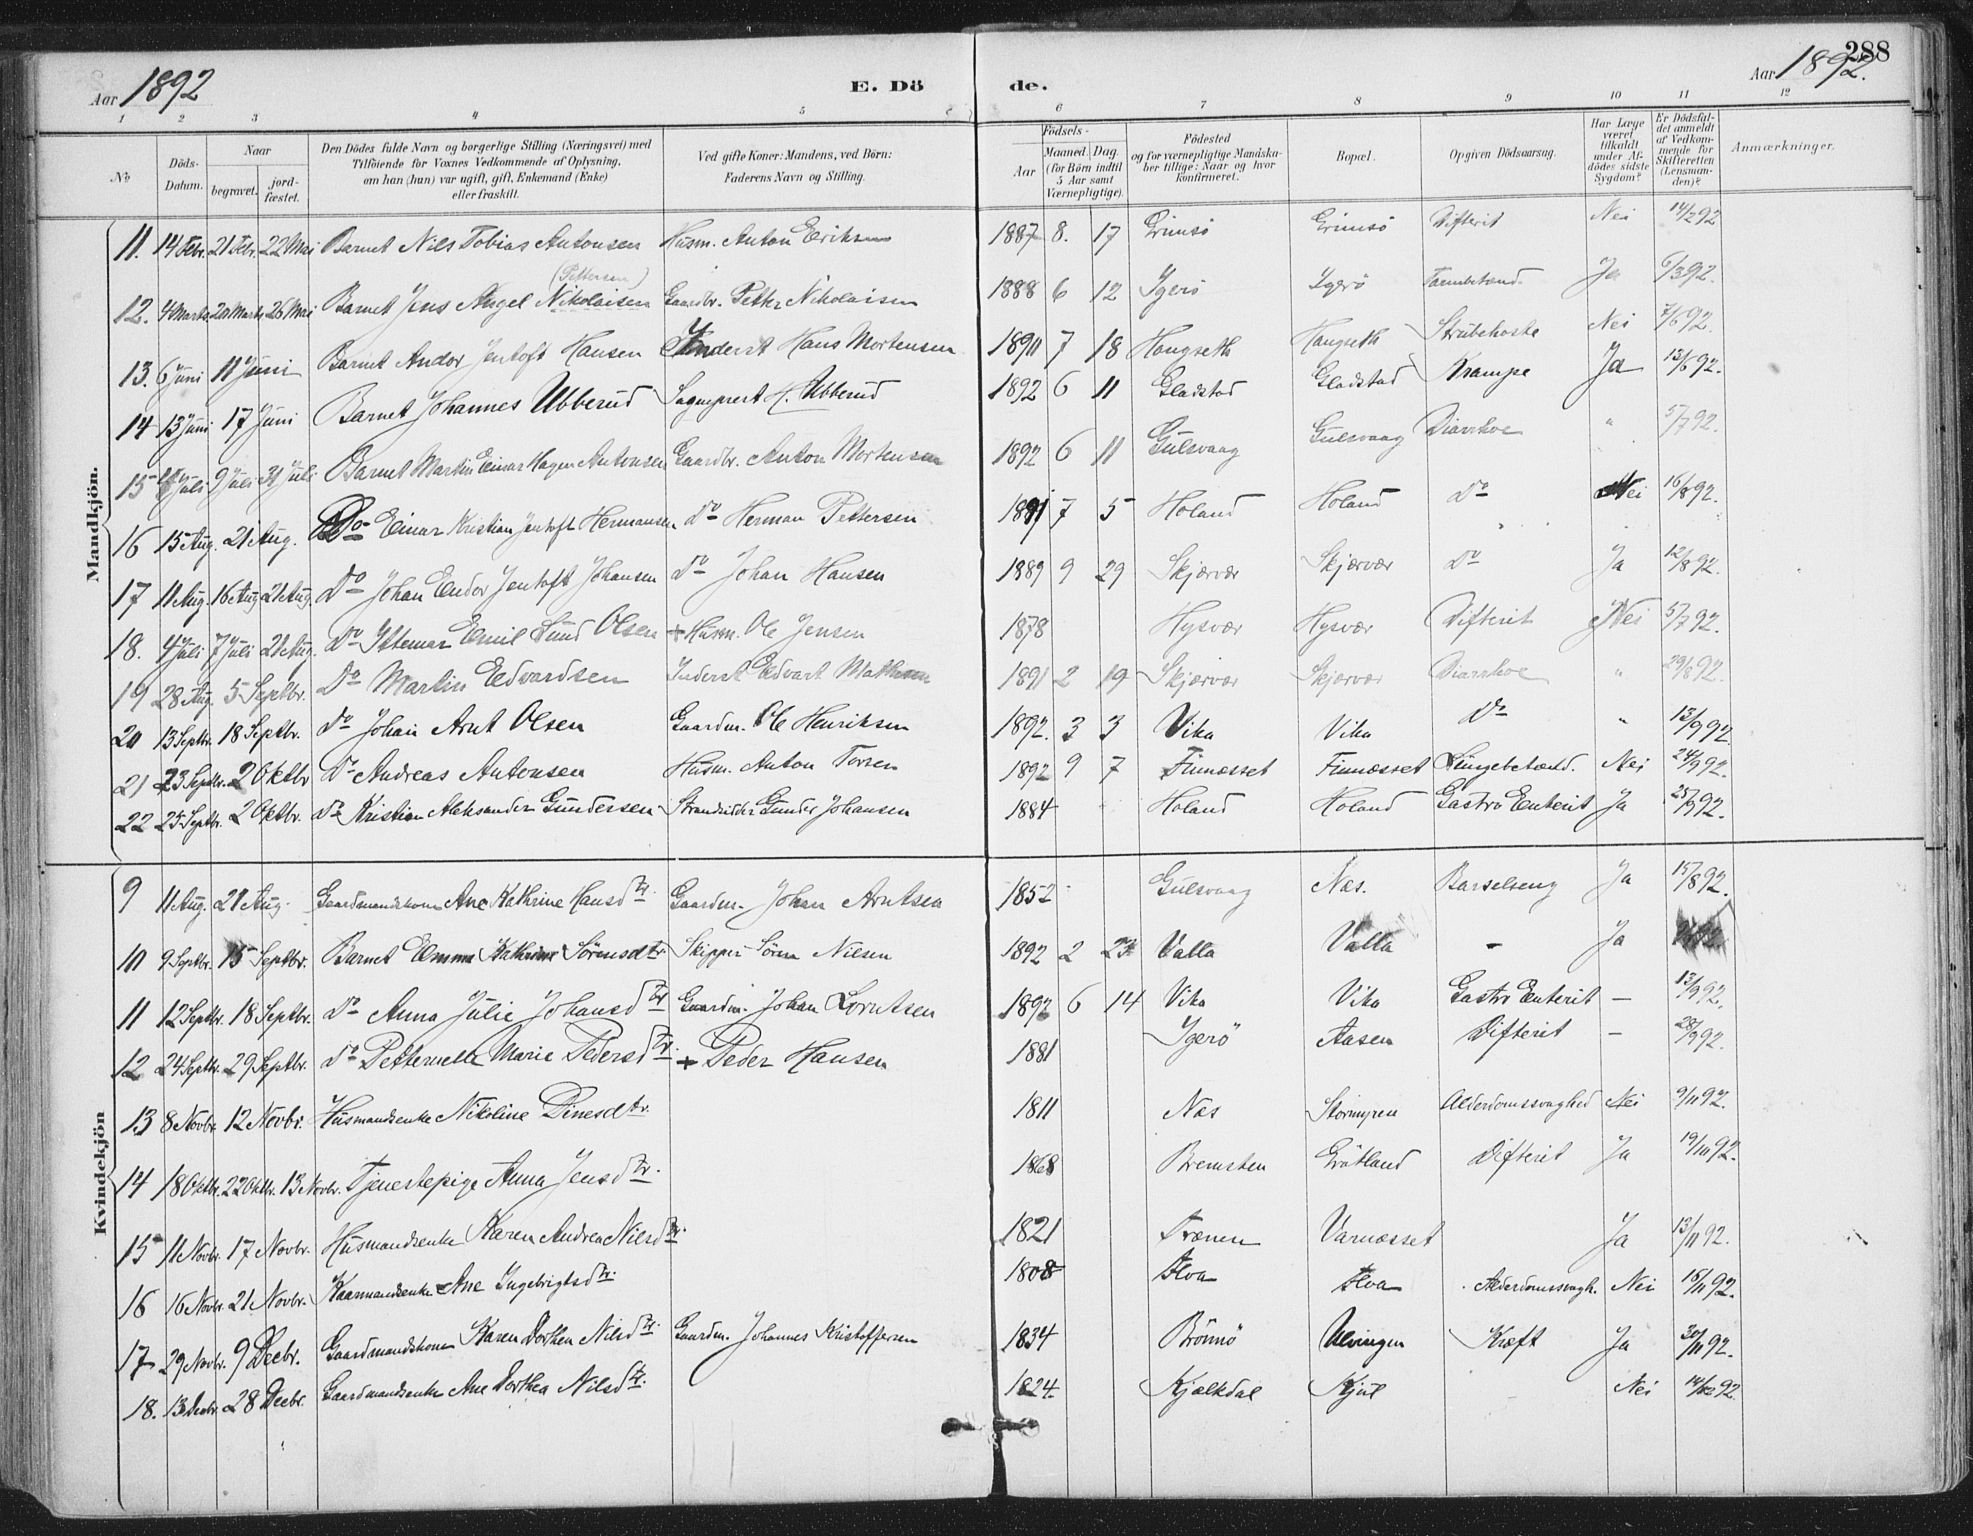 288
Aar 1892
E. Dö de.
Aar 1892.
1 2 3 4 5 6 7 8 9 10 11 12
No
Döds-Datum.
Naar begravet. jord-fæstet.
Den Dödes fulde Navn og borgerlige Stilling (Næringsvei) med Tilföiende for Voxnes Vedkommende af Oplysning, om han (hun) var ugift, gift, Enkemand (Enke) eller fraskilt.
Ved gifte Koner: Mandens, ved Börn: Faderens Navn og Stilling.
Födsels-
Aar Maaned. Dag. (for Börn indtil 5 Aar samt Værnepligtige).
Födested og for værnepligtige Mandskaber tillige: Naar og hvor konfirmeret.
Bopæl.
Opgiven Dödsaarsag.
Har Læge været tilkaldt under Afdödes sidste Sygdom?
Er Dödsfaldet anmeldt af Vedkommende for Skifteretten (Lensmanden)?
Anmærkninger.
Mandkjön.
11. 14 Febr. 21 Febr. 22 Mai Barnet Nils Tobias Antonsen Husm. Anton Eriksen 1887 8. 17 Grimsö Grimsö Difterit Nei 14/2 92
(Pettersen)
12. 4 Marts 20 Marts 26 Mai Barnet Jens Angel Nikolaisen Gaardbr. Petter Nikolaisen 1888 6 12 Ygerö Ygerö Tarmbetænd. Ja 6/3 92.
13. 6 Juni 11 Juni Barnet Andor Jentoft Hansen Inderst Hans Mortensen 1890 7 18 Haugseth Haugseth Strubehoste Nei 7/6 92.
14 13 Juni 17 Juni Barnet Johannes Ubberud H. Ubberud 1892 6 11 Gladstad Gladstad Krampe Ja 13/6 92.
15 Juli 9 Juli 31 Juli Barnet Martin Einar Hagen Antonsen Gaardbr. Anton Mortensen 1892 6 11 Gulsvaag Gulsvaag Diarrhoe " 5/7 92.
16 15 Aug. 21 Aug. Do Einar Kristian Jentoft Hermansen Do Herman Pettersen 1891 7 5 Holand Holand Do Nei 16/8 92.
17 11 Aug. 16 Aug 21 Aug. Do Johan Endor Jentoft Johansen Do Johan Hansen 1889 9 29 Skjærvær Skjærvær Do Ja 12/8 92.
18. 4 Juli 7 Juli 21 Aug. Do Ittemar Emil Lund Olsen + Husm. Ole Jensen 1878 Hysvær Hysvær Difterit Nei 5/7 92.
19 28 Aug. 5 Septbr. Do Martin Edvardsen Inderst Edvart Mathisen 1891 2 19 Skjærvær Skjærvær Diarrhoe " 29/8 92.
20 13 Septbr. 18 Septbr. Do Johan Arnt Olsen Gaardm. Ole Henriksen 1892. 3 3 Vika Vika Do " 13/9 92
21 23 Septbr. 2 Oktbr Do Andreas Antonsen Husm. Anton Torsen 1892 9 7 Finnæsset Finnæsset Lungebetænd. Nei 24/9 92.
22 25 Septbr. 2 Oktbr. Do Kristian Aleksander Gundersen Strandsidder Gunder Johansen 1884 Holand Holand Gastro Enterit Ja 25/9 92.
Kvindekjön
9 11 Aug. 21 Aug. Gaardmandskone Ane Kathrine Hansdtr. Gaardm. Johan Arntsen 1852 Gulsvaag Næs. Barselseng Ja 15/8 92.
10 9 Septbr. 15 Septbr. Barnet Emma Kathrine Sörensdtr. Skipper Sören Nilsen 1892 2 23 Valla Valla - Ja
11 12 Septbr. 18 Septbr. Do Anna Julie Johansdtr. Gaardm. Johan Lorntsen 1892 6 14 Vika Vika Gastro Enterit — 13/9 92.
12 24 Septbr. 29 Septbr. Do Petternelle Marie Pedersdtr. + Peder Hansen 1881 Ygerö Aasen Difterit — 28/9 92.
13 8 Novbr. 12 Novbr. Husmandsenke Nikoline Dinesdtr. 1811 Næs Stormyren Alderdomssvaghed Nei 9/11 92.
14 18 Oktbr. 22 Oktbr. 13 Novbr. Tjenestepige Anna Jensdtr. 1868 Bremsten Grötland Difterit Ja 19/10 92.
15 11 Novbr. 17 Novbr. Husmandsenke Karen Andrea Nilsdtr. 1821 Trænen Varnæsset Ja 13/11 92.
16 16 Novbr. 21 Novbr. Kaarmandsenke Ane Ingebrigtsdtr. 1808 Floa Floa Alderdomssvagh. Nei 18/11 92.
17 29 Novbr. 9 Decbr. Gaardmandskone Karen Dorthea Nilsdtr. Gaardm. Johannes Kristoffersen 1834 Brönnö Ulvingen Kræft Ja 30/11 92.
18. 13 Decbr. 28 Decbr. Gaardmandsenke Ane Dorthea Nilsdtr. 1824. Kjælkdal Kjul Nei 14/12 92.